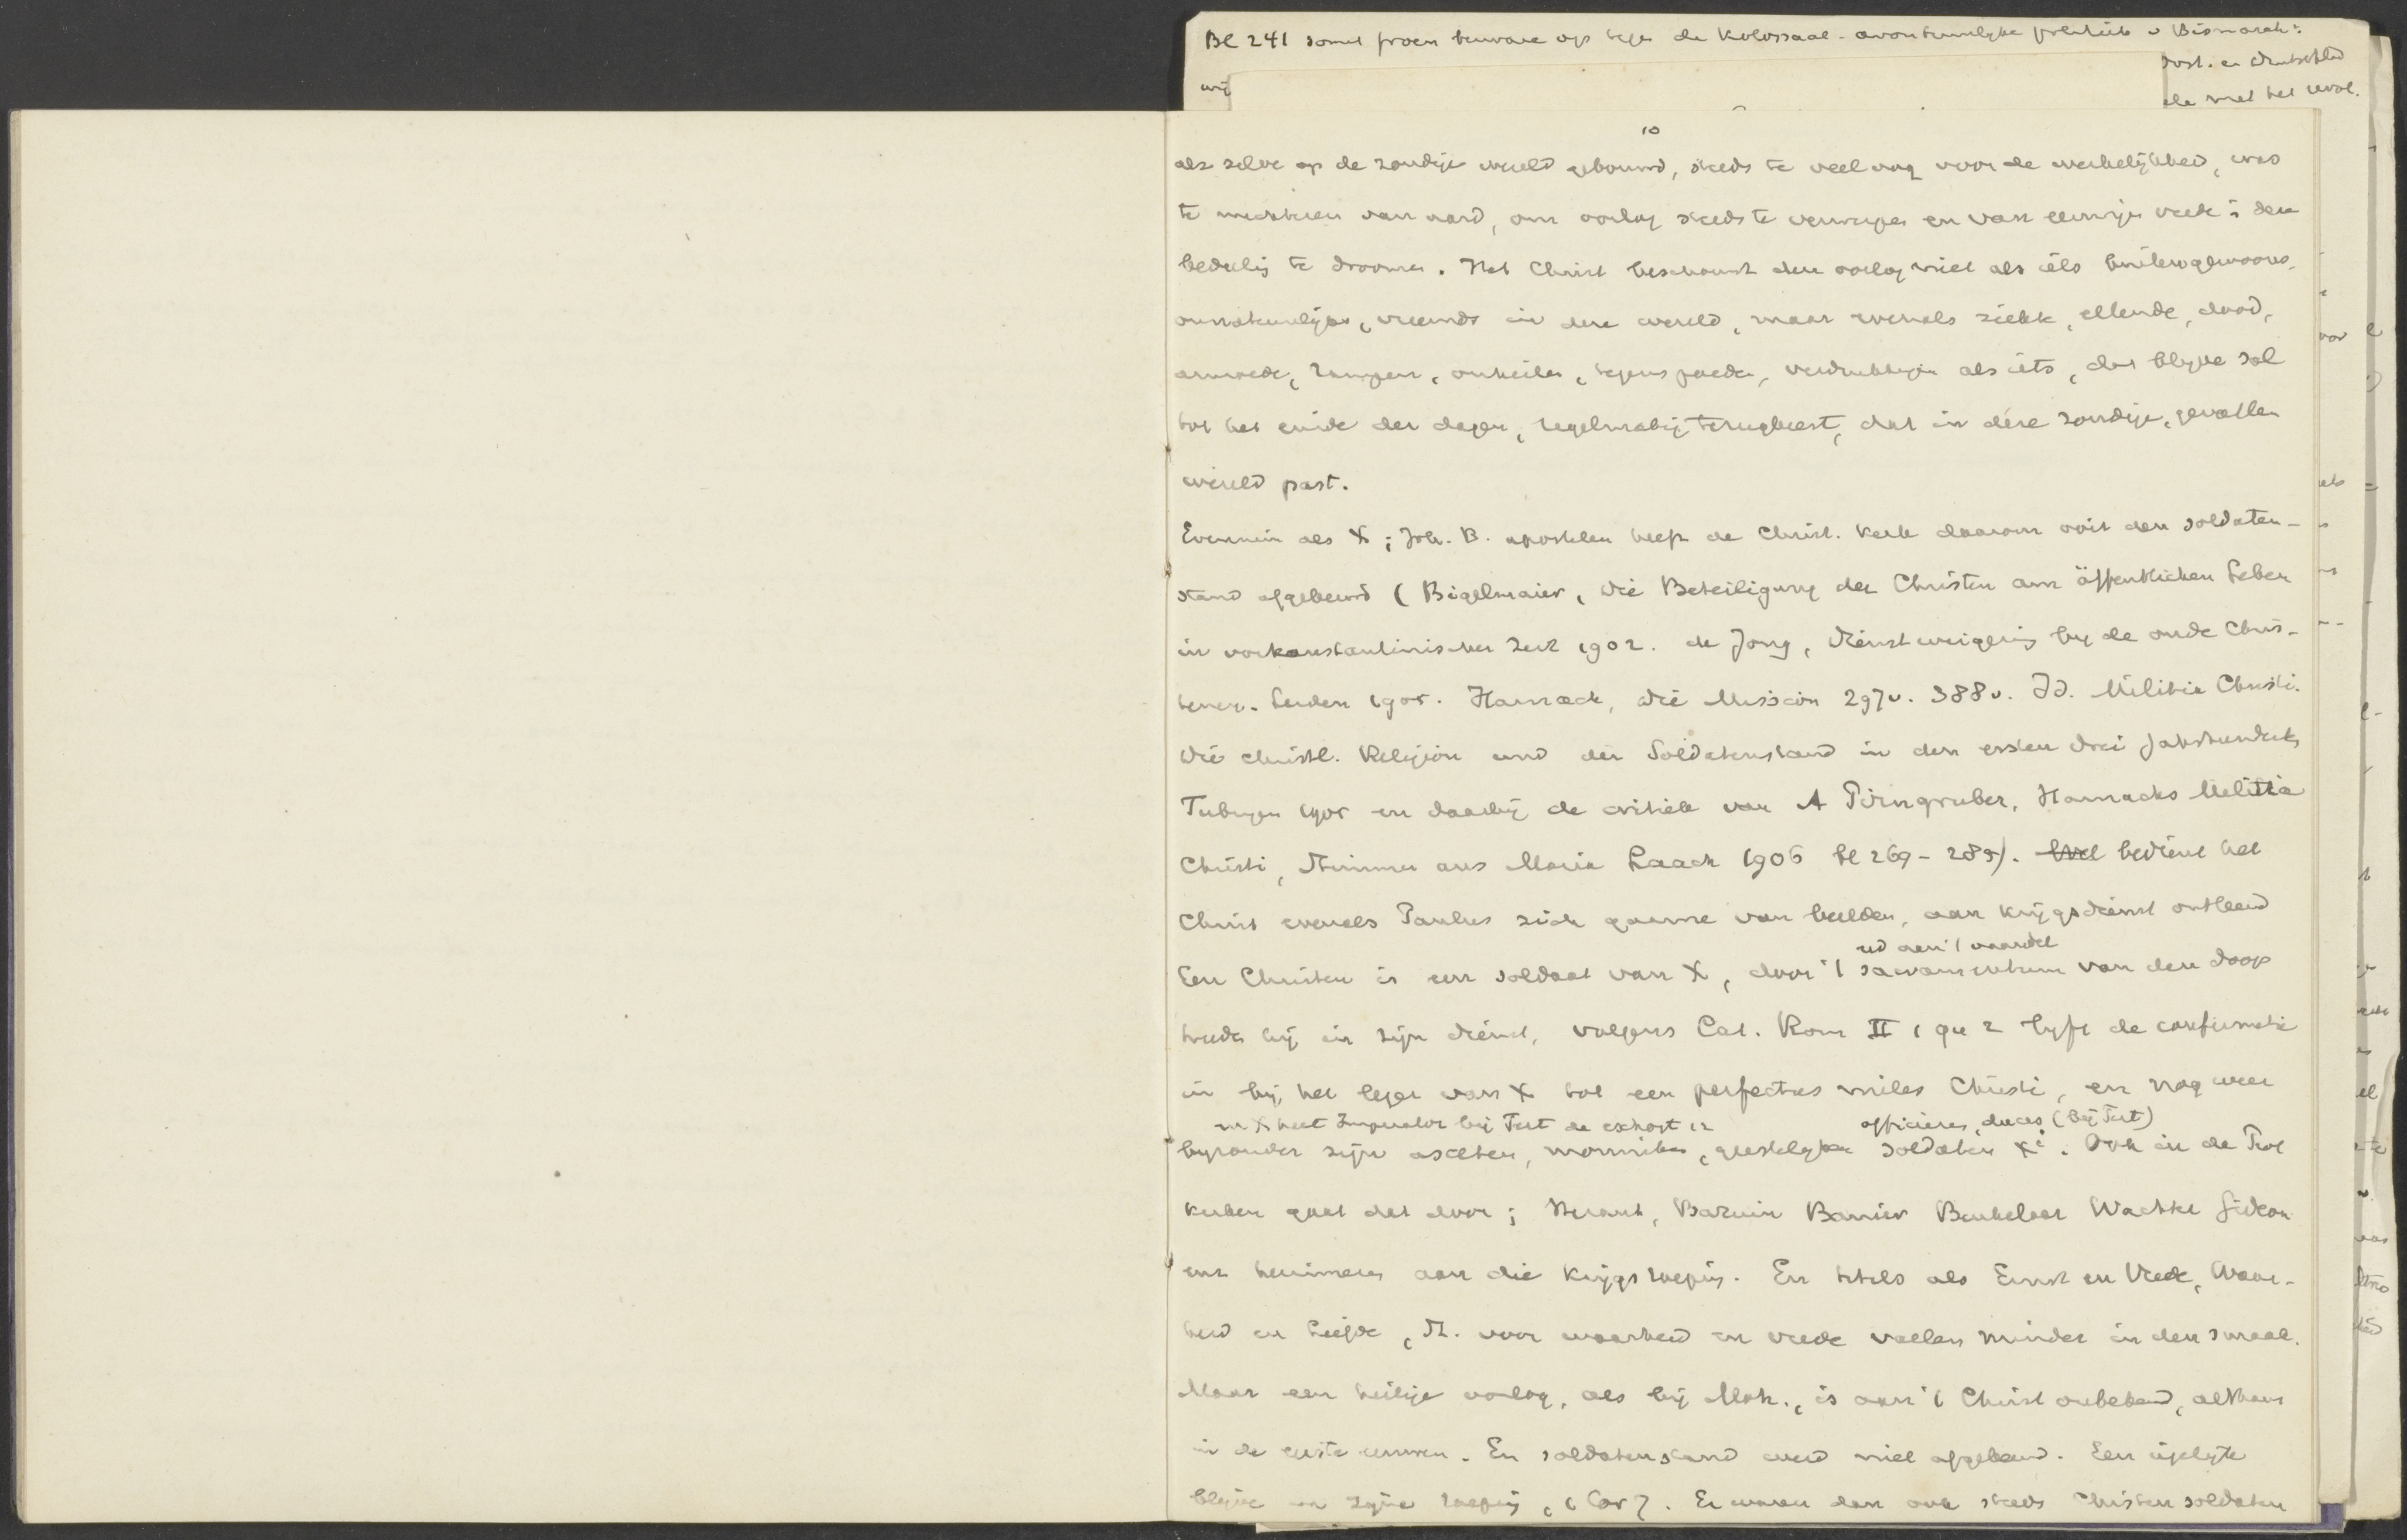 Bl 241 somt proen beware op tege de Kolossaal-avontuurlyke politiek v Bismarck:
Oost. en Deutschld
wij
de met het revol.
10
als zelve op de zondige wereld gebouwd, steeds te veel oog voor de werkelijkheid, was
te nuchteren van aard, om oorlog steeds te verwerpen en van eeuwigen vrede in deze
bedeelig te droomen. Het Christ beschouwt den oorlog niet als iets buitengewoons,
onnatuurlijks, vreemds in deze wereld, maar evenals ziekte, ellende, dood,
armoede, rampen, onheilen, tegenspoeden, verdrukkingen als iets, dat blijven sal
tot het einde der dagen, regelmatig terugkeert, dat in deze zondige, gevallen
wereld past.
Evenmin als X; Joh. B. apostelen heeft de Christ. Kerk daarom ooit den soldaten-
stand afgekeurd (Bigelmaier, Die Beteiligung der Christen am öffentlichen Leben
in vorkonstantinischer Zeit 1902. de Jong, Dienstweigering by de oude Chris-
tenen. Leiden 1905. Harnack, Die Mission 297v. 388v. Id. Militia Christi.
Die christl. Religion und der Soldatenstand in den ersten drei Jahrhunderts
Tubingen 1905 en daarbij de critiek van A Pirngruber, Harnacks Militia
Christi, Stimmen aus Maria Laach 1906 bl 269-289). Wel bedient het
Christ evenals Paulus zich gaarne van beelden, aan krijgsdienst ontleend
aan 't vaandel
Een Christen is een soldaat van X, door 't sacramentum van den doop
treedt hij in zijn dienst, volgens Cat. Rom II 1 qu 2 lyft de confirmatie
in bij het leger van X tot een perfectus miles Christi, en nog weer
en X heet Imperator bij Tert de exhort 12
officieren, duces (bij Tert)
byzonder zijn asceten, monniken, geestelyken soldaten Xi. Ook in de Prot
kerken gaat dat door; Heraut, Bazuin Banier Beukelaar Wachter Gideon
enz herinneren aan die krijgsroeping. En titels als Ernst en Vrede, Waar-
heid en Liefde, St. voor waarheid en vrede vallen minder in den smaak.
Maar een heilige oorlog, als bij Moh., is aan 't Christ onbekend, althans
in de eerste eeuwen. En soldatenstand werd niet afgekeurd. Een iegelyk
blijve in zijne roeping, 1 Cor 7. Er waren dan ook steeds Christen soldaten